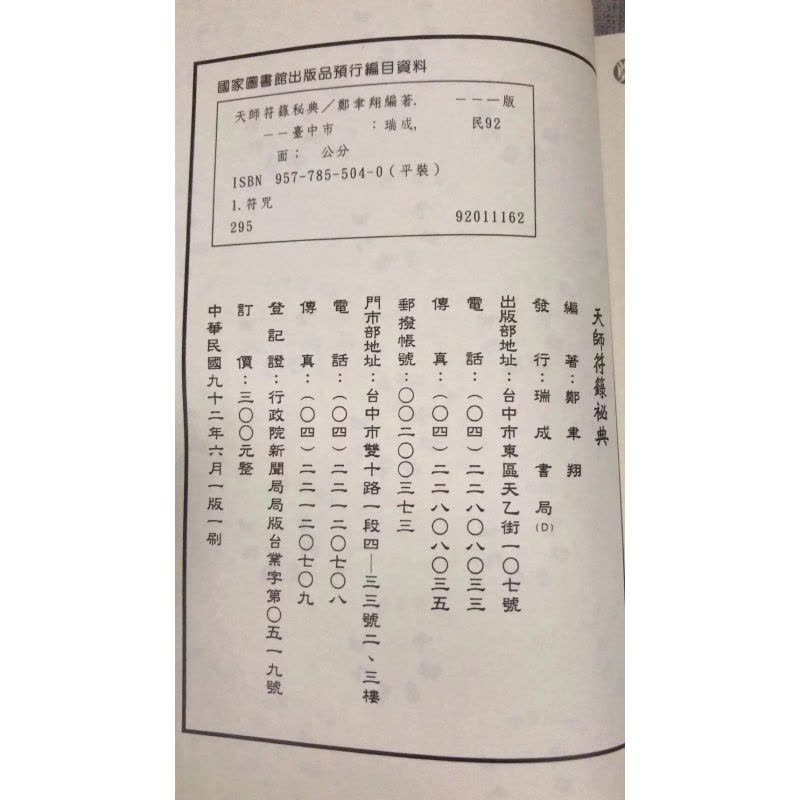 國家圖書館出版品預行編目資料
天師符籙秘典／鄭聿翔編著. －－－版
－－臺中市 ：瑞成, 民92
面； 公分
ISBN 957-785-504-0（平裝）
1.符咒
295 92011162
天師符籙祕典
編著：鄭聿翔
發行：瑞成書局(D)
出版部地址：台中市東區天乙街一〇七號
電話：（〇四）二二八〇八〇三三
傳真：（〇四）二二八〇八〇三五
郵撥帳號：〇〇二〇〇三七三
門市部地址：台中市雙十路一段四—三三號二、三樓
電話：（〇四）二二一二〇七〇八
傳真：（〇四）二二一二〇七〇九
登記證：行政院新聞局局版台業字第〇五一九號
訂價：三〇〇元整
中華民國九十二年六月一版一刷